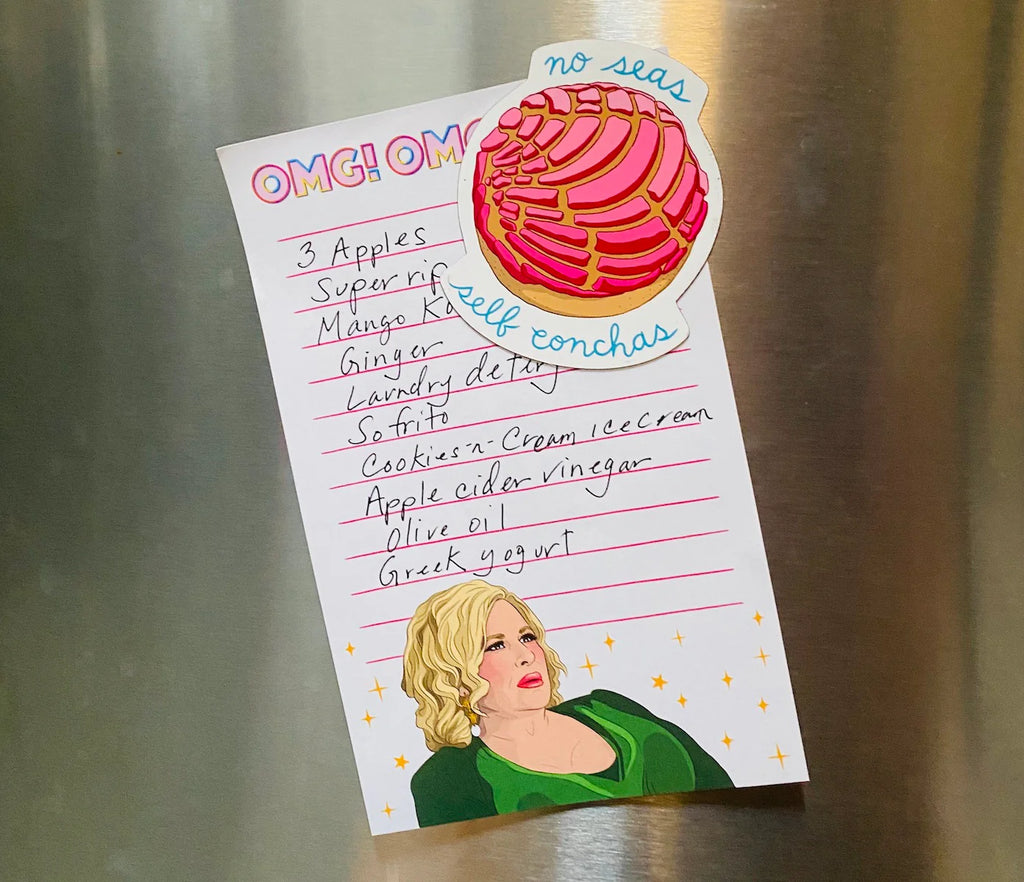 no seas
OMG! OMG
3 Apples
Super rip
Mango
self conchas
Ginger
Laundry deterg
Sofrito
Cookies-n-Cream ice cream
Apple cider vinegar
Olive oil
Greek yogurt